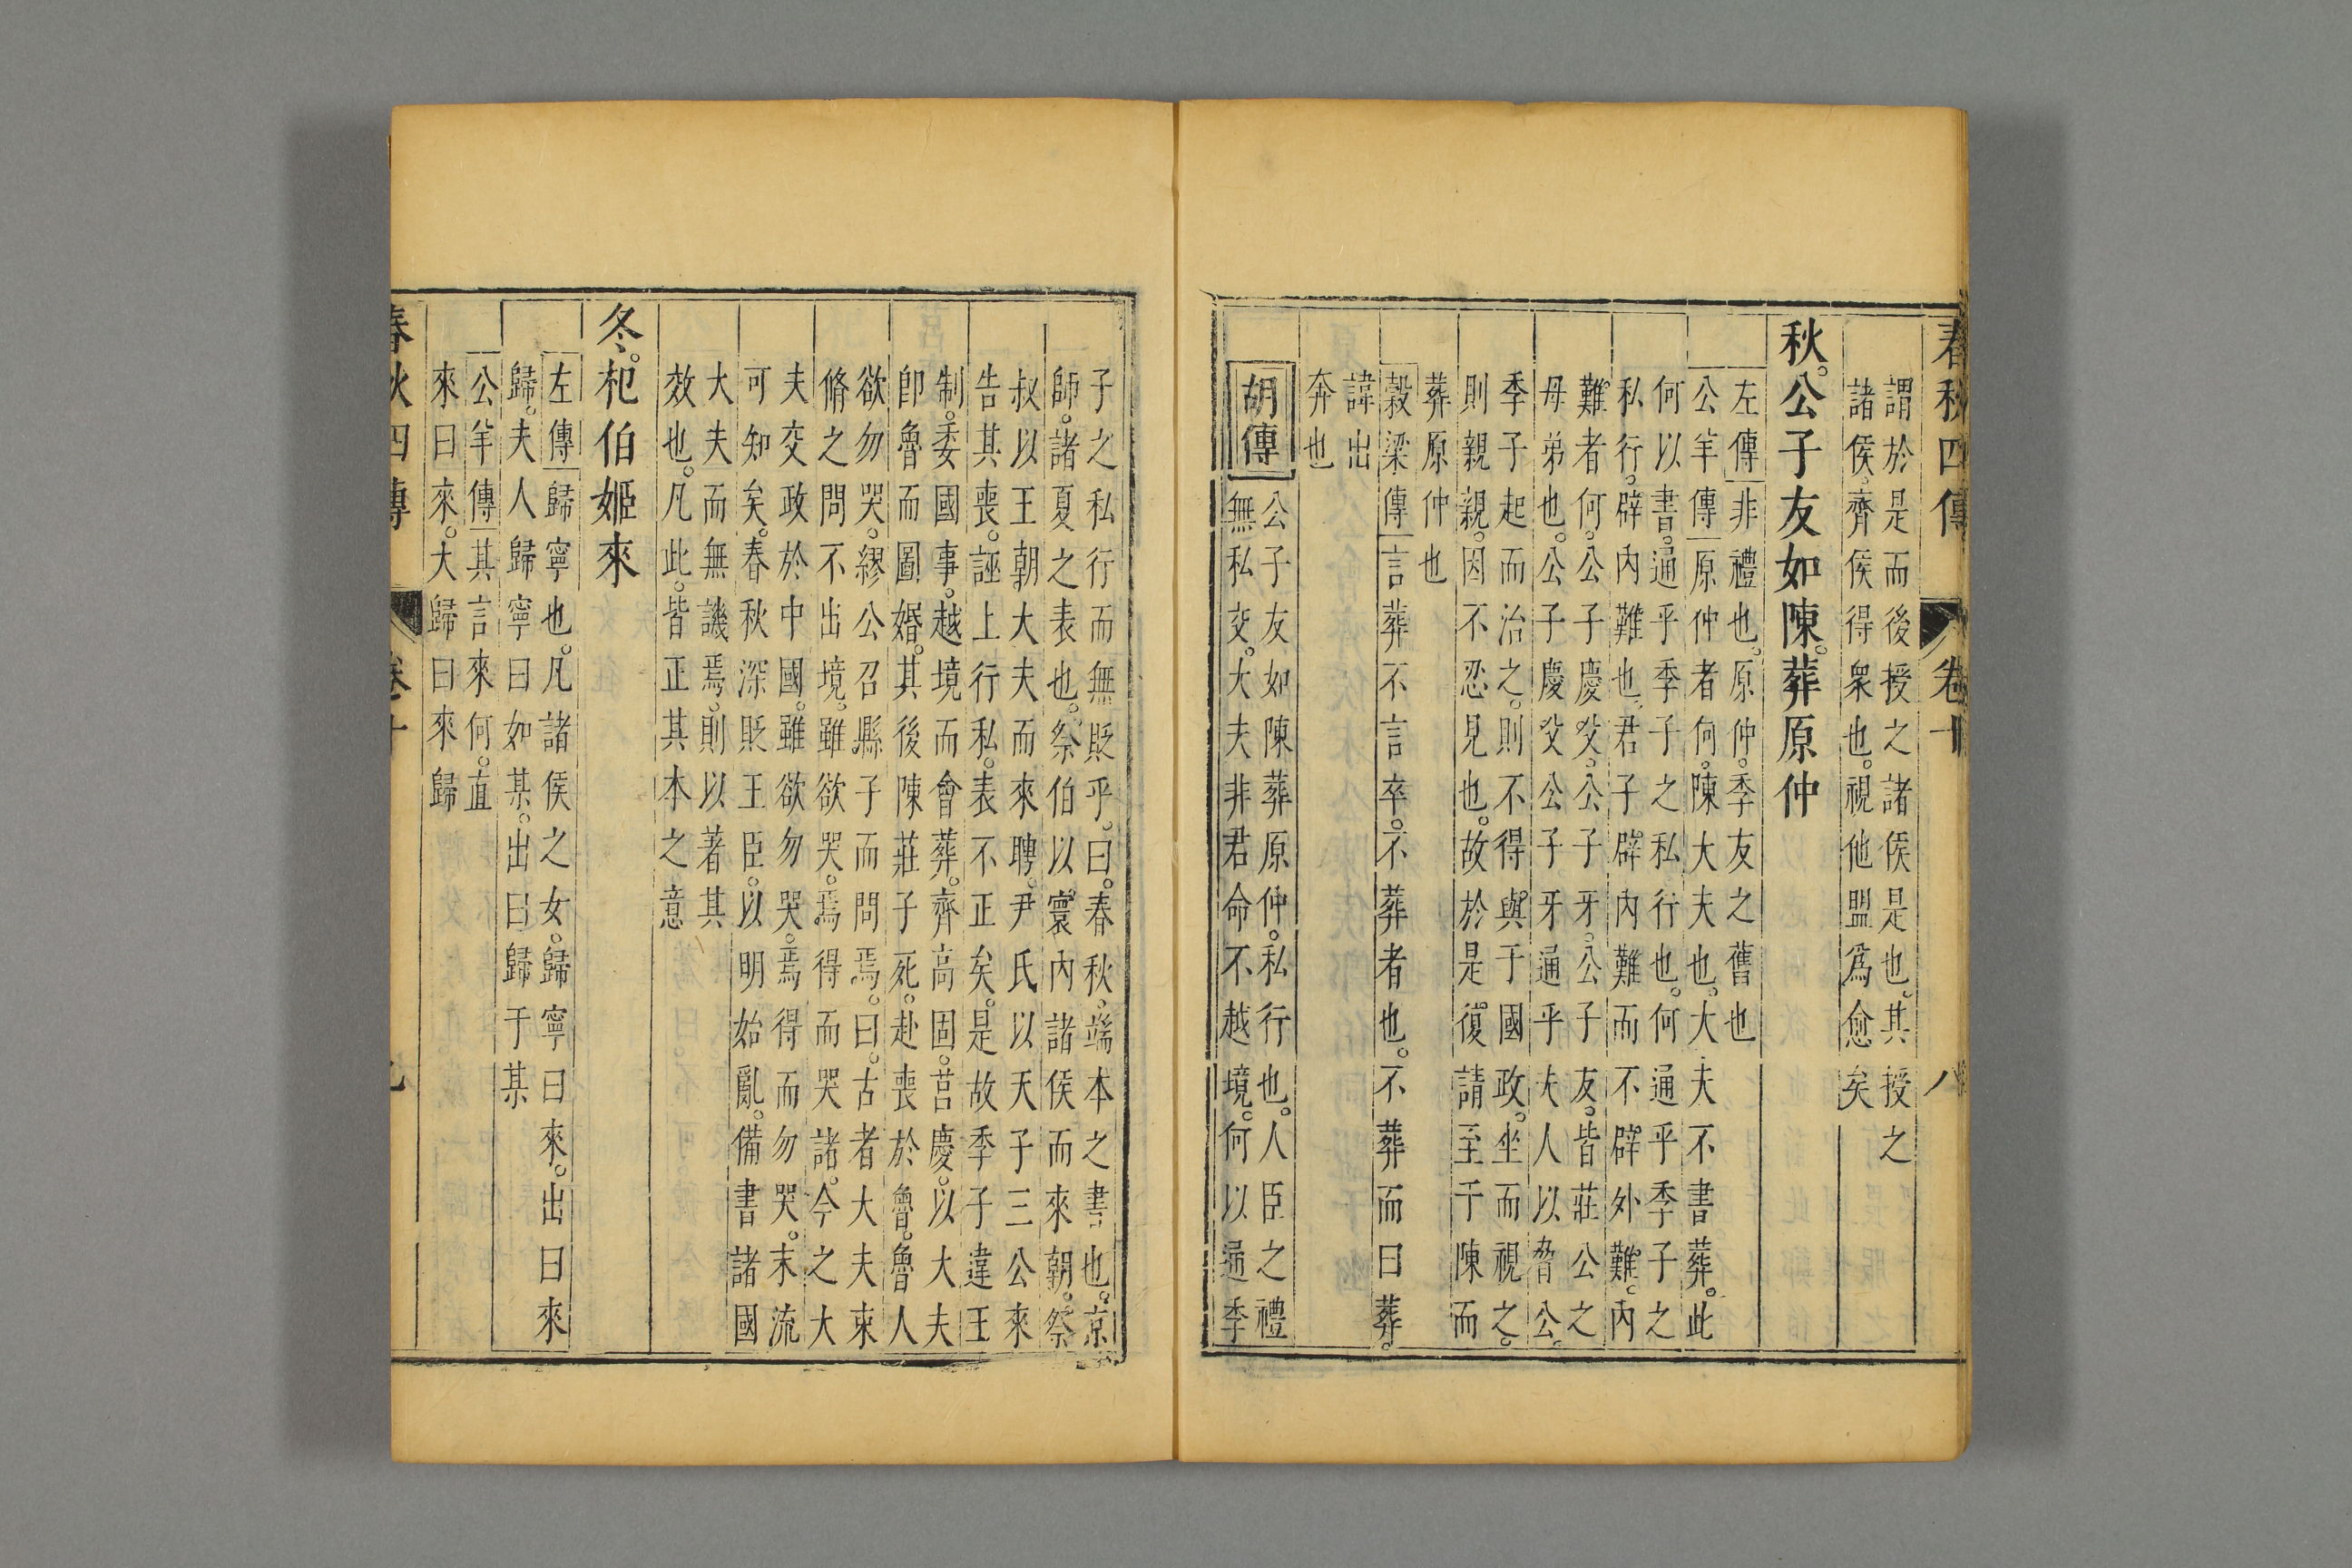 春秋四傳 卷十 八
謂於是而後授之諸侯是也。其授之
諸侯。齊侯得衆也。視他盟爲愈矣
秋。公子友如陳。葬原仲
左傳 非禮也。原仲。季友之舊也
公羊傳 原仲者何。陳大夫也。大夫不書葬。此
何以書。通乎季子之私行也。何通乎季子之
私行。辟內難也。君子辟內難而不辟外難。內
難者何。公子慶父。公子牙。公子友。皆莊公之
母弟也。公子慶父公子牙通乎夫人以脅公。
季子起而治之。則不得與于國政。坐而視之。
則親親。因不忍見也。故於是復請至于陳而
葬原仲也
穀梁傳 言葬不言卒。不葬者也。不葬而曰葬。
諱出
奔也
胡傳
公子友如陳葬原仲。私行也。人臣之禮
無私交。大夫非君命不越境。何以通季
子之私行而無貶乎。曰。春秋。端本之書也。京
師。諸夏之表也。祭伯以寰內諸侯而來朝。祭
叔以王朝大夫而來聘。尹氏以天子三公來
告其喪。誣上行私。表不正矣。是故季子違王
制。委國事。越境而會葬。齊高固。莒慶。以大夫
卽魯而圖婚。其後陳莊子死。赴喪於魯。魯人
欲勿哭。繆公召縣子而問焉。曰。古者大夫束
脩之問不出境。雖欲哭。焉得而哭諸。今之大
夫交政於中國。雖欲勿哭。焉得而勿哭。末流
可知矣。春秋深貶王臣。以明始亂。備書諸國
大夫而無譏焉。則以著其
效也。凡此。皆正其本之意
冬。杞伯姬來
左傳 歸寧也。凡諸侯之女。歸寧曰來。出曰來
歸。夫人歸寧曰如某。出曰歸于某
公羊傳 其言來何。直
來曰來。大歸曰來歸
春秋四傳 卷十 九